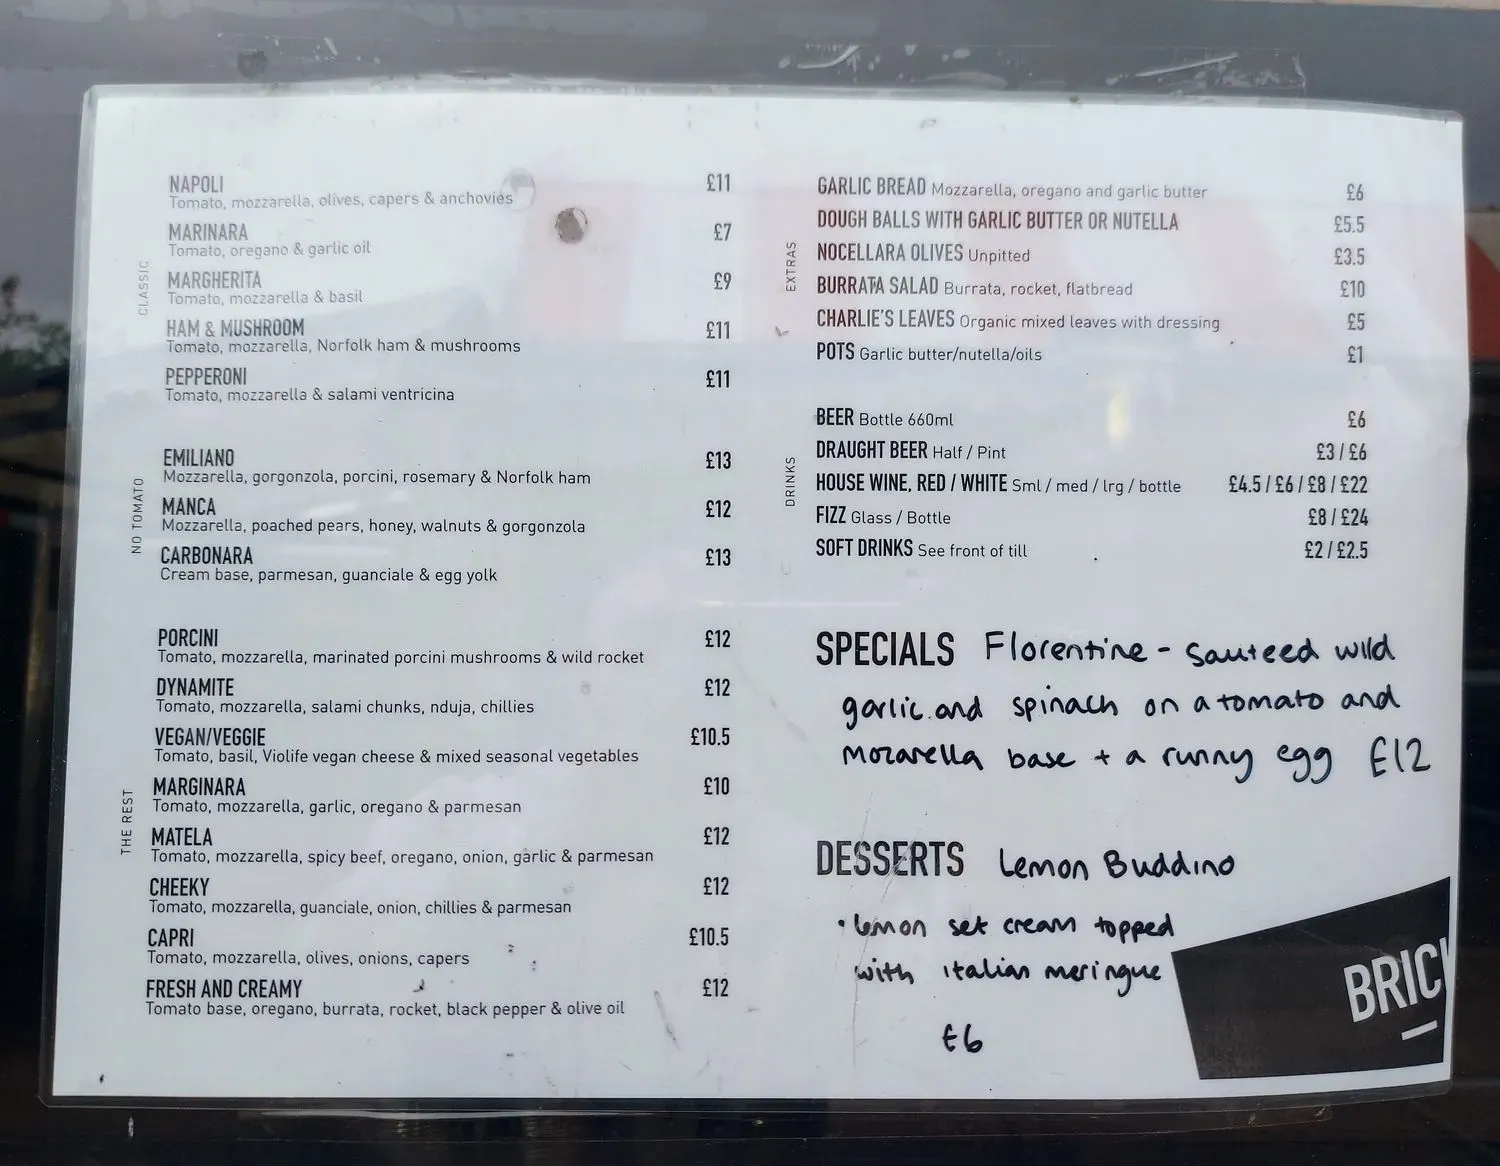 CLASSIC
NAPOLI £11
Tomato, mozzarella, olives, capers & anchovies
MARINARA £7
Tomato, oregano & garlic oil
MARGHERITA £9
Tomato, mozzarella & basil
HAM & MUSHROOM £11
Tomato, mozzarella, Norfolk ham & mushrooms
PEPPERONI £11
Tomato, mozzarella & salami ventricina
NO TOMATO
EMILIANO £13
Mozzarella, gorgonzola, porcini, rosemary & Norfolk ham
MANCA £12
Mozzarella, poached pears, honey, walnuts & gorgonzola
CARBONARA £13
Cream base, parmesan, guanciale & egg yolk
THE REST
PORCINI £12
Tomato, mozzarella, marinated porcini mushrooms & wild rocket
DYNAMITE £12
Tomato, mozzarella, salami chunks, nduja, chillies
VEGAN/VEGGIE £10.5
Tomato, basil, Violife vegan cheese & mixed seasonal vegetables
MARGINARA £10
Tomato, mozzarella, garlic, oregano & parmesan
MATELA £12
Tomato, mozzarella, spicy beef, oregano, onion, garlic & parmesan
CHEEKY £12
Tomato, mozzarella, guanciale, onion, chillies & parmesan
CAPRI £10.5
Tomato, mozzarella, olives, onions, capers
FRESH AND CREAMY £12
Tomato base, oregano, burrata, rocket, black pepper & olive oil
EXTRAS
GARLIC BREAD Mozzarella, oregano and garlic butter £6
DOUGH BALLS WITH GARLIC BUTTER OR NUTELLA £5.5
NOCELLARA OLIVES Unpitted £3.5
BURRATA SALAD Burrata, rocket, flatbread £10
CHARLIE'S LEAVES Organic mixed leaves with dressing £5
POTS Garlic butter/nutella/oils £1
DRINKS
BEER Bottle 660ml £6
DRAUGHT BEER Half / Pint £3 / £6
HOUSE WINE, RED / WHITE Sml / med / lrg / bottle £4.5 / £6 / £8 / £22
FIZZ Glass / Bottle £8 / £24
SOFT DRINKS See front of till £2 / £2.5
SPECIALS Florentine - sauteed wild
garlic and spinach on a tomato and
mozarella base + a runny egg £12
DESSERTS Lemon Buddino
• lemon set cream topped
with italian meringue
£6
BRIC